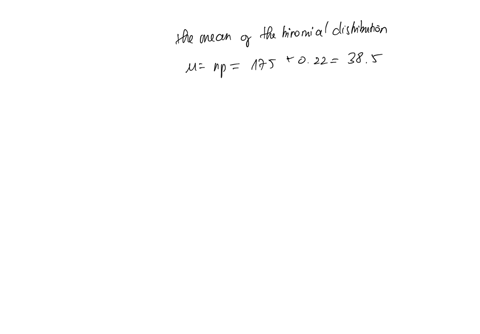 the mean of the binomial distribution
μ = np = 175 + 0.22 = 38.5